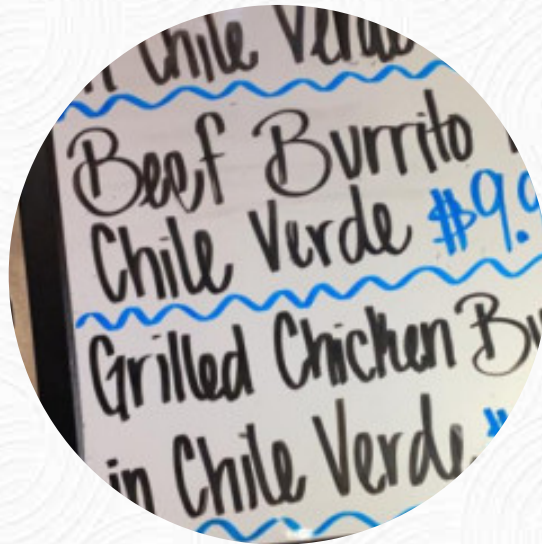 in Chile Verde
Beef Burrito
Chile Verde $9.9
Grilled Chicken Bu
in Chile Verde